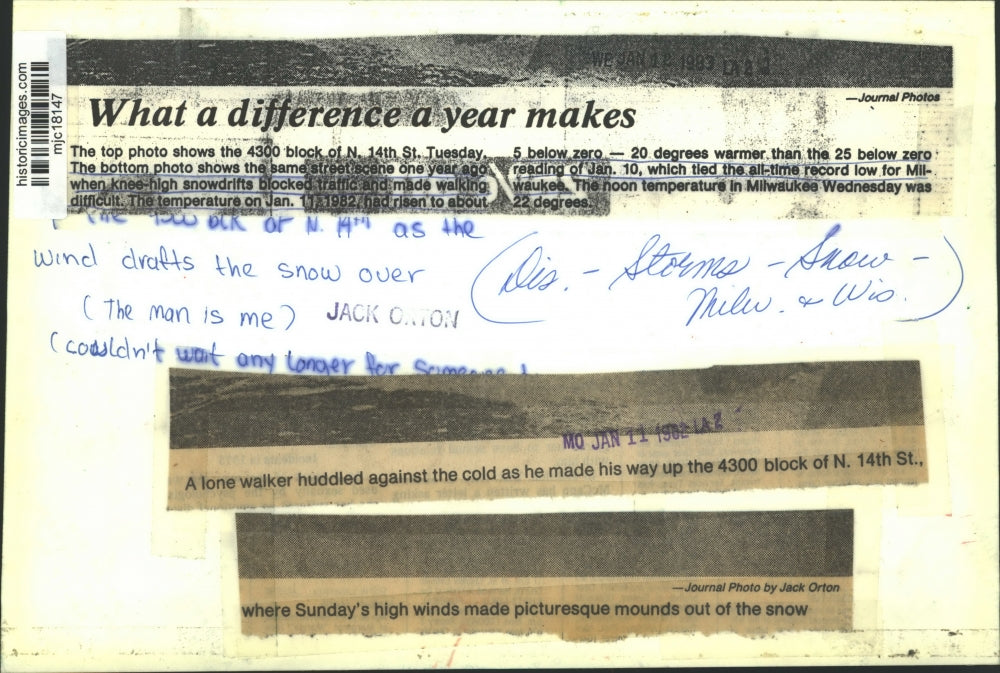 historicimages.com
mjc181147
WE JAN 12 1983
What a difference a year makes
—Journal Photos
The top photo shows the 4300 block of N. 14th St. Tuesday.
The bottom photo shows the same street scene one year ago
when knee-high snowdrifts blocked traffic and made walking
difficult. The temperature on Jan. 11, 1982, had risen to about
5 below zero — 20 degrees warmer than the 25 below zero
reading of Jan. 10, which tied the all-time record low for Mil-
waukee. The noon temperature in Milwaukee Wednesday was
22 degrees.
of N. 14th as the
wind drafts the snow over
(The man is me) JACK ORTON
(couldn't wait any longer for someone
(Dis. - Storms - Snow -
Milw. & Wis.)
MO JAN 11 1982 LAZ
A lone walker huddled against the cold as he made his way up the 4300 block of N. 14th St.,
—Journal Photo by Jack Orton
where Sunday's high winds made picturesque mounds out of the snow